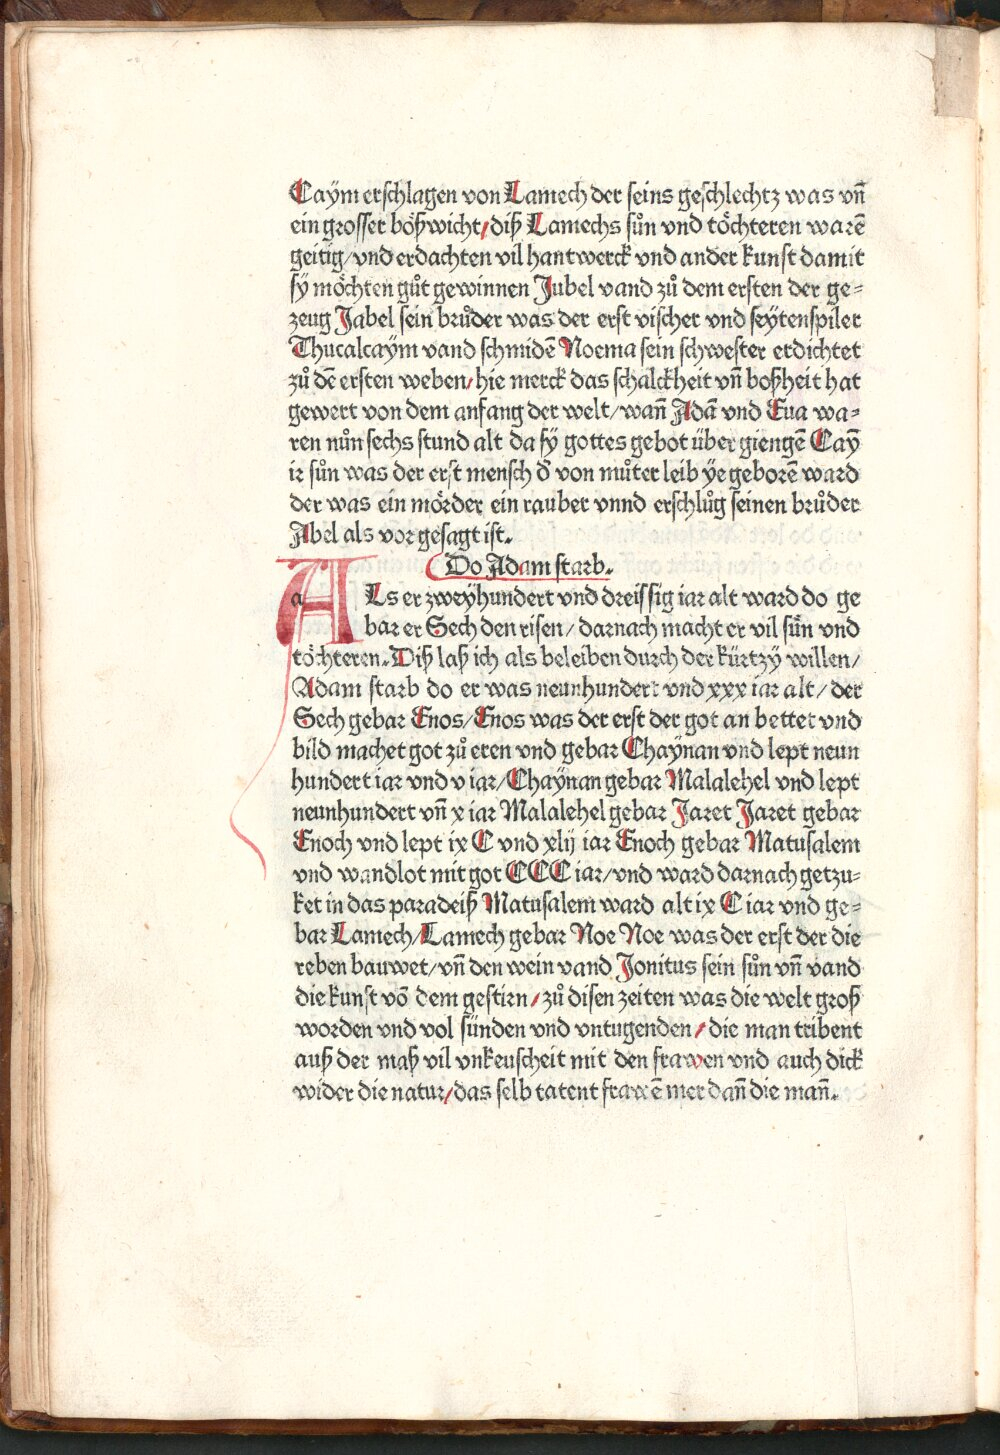 Caÿm erschlagen von Lamech der seins geschlechtz was vñ
ein grosser bößwicht/ diß Lamechs sůn vnd töchteren warē
geitig/ vnd erdachten vil hantwerck vnd ander kunst damit
sÿ möchten gůt gewinnen Jubel vand zů dem ersten der ge⸗
zeug Jabel sein brůder was der erst vischer vnd seÿtenspiler
Thucalcaÿm vand schmidē Noema sein schwester erdichtet
zů dē ersten weben/ hie merck das schalckheit vñ boßheit hat
gewert von dem anfang der welt/ wañ Adā vnd Eua wa⸗
ren nůn sechs stund alt da sÿ gottes gebot über giengē Caȳ
ir sůn was der erst mensch d̄ von můter leib ÿe geborē ward
der was ein mörder ein rauber vnnd erschlůg seinen brůder
Abel als vor gesagt ist.
Do Adam starb.
aLs er zweÿhundert vnd dreissig iar alt ward do ge
bar er Sech den risen/ darnach macht er vil sůn vnd
töchteren. Diß laß ich als beleiben durch der kürtzÿ willen/
Adam starb do er was neunhundert vnd xxx iar alt/ der
Sech gebar Enos/ Enos was der erst der got an bettet vnd
bild machet got zů eren vnd gebar Chaÿnan vnd lept neun
hundert iar vnd v iar/ Chaÿnan gebar Malalehel vnd lept
neunhundert vñ x iar Malalehel gebar Jaret Jaret gebar
Enoch vnd lept ix C vnd xlij iar Enoch gebar Matusalem
vnd wandlot mit got CCC iar/ vnd ward darnach getzu⸗
ket in das paradeiß Matusalem ward alt ix C iar vnd ge⸗
bar Lamech/ Lamech gebar Noe Noe was der erst der die
reben bauwet/ vñ den wein vand Jonitus sein sůn vñ vand
die kunst vō dem gestirn/ zů disen zeiten was die welt groß
worden vnd vol sünden vnd vntugenden/ die man tribent
auß der maß vil vnkeuscheit mit den frawen vnd auch dick
wider die natur/ das selb tatent frawē mer dañ die mañ.